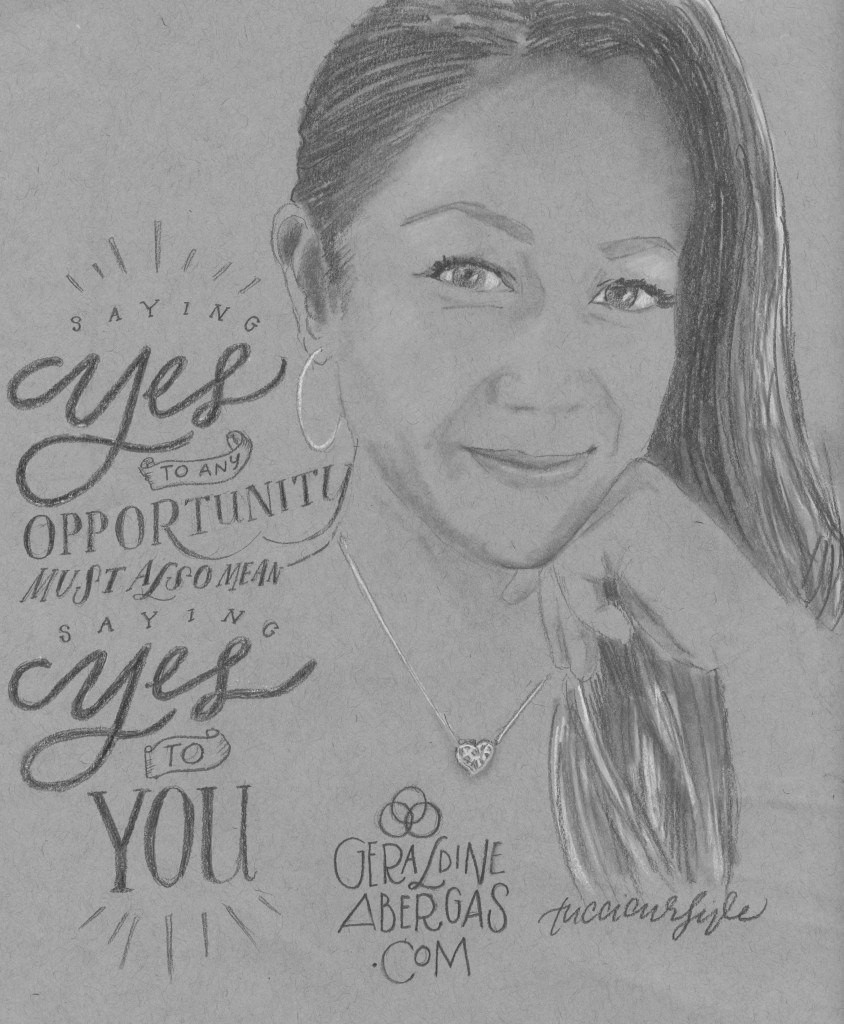 SAYING
yes
TO ANY
OPPORTUNITY
MUST ALSO MEAN
SAYING
yes
TO
YOU
GERALDINE
ABERGAS
.COM